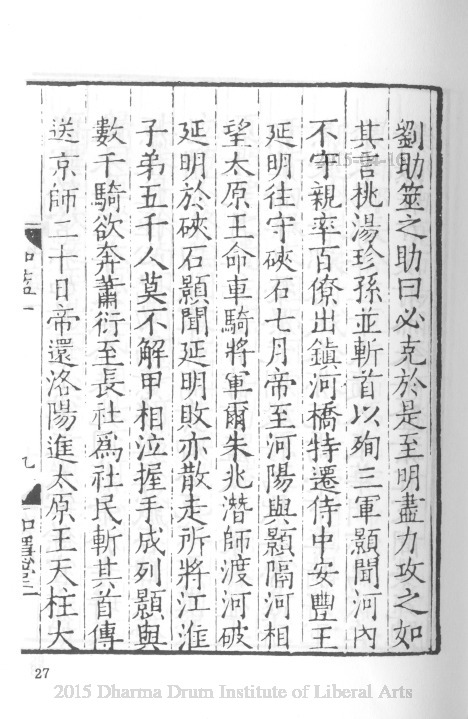 劉助筮之助曰必克於是至明盡力攻之如
其言桃湯珍孫並斬首以殉三軍顥聞河內
不守親率百僚出鎮河橋特遷侍中安豐王
延明往守硤石七月帝至河陽與顥隔河相
望太原王命車騎將軍爾朱兆潛師渡河破
延明於硤石顥聞延明敗亦散走所將江淮
子弟五千人莫不解甲相泣握手成列顥與
數千騎欲奔蕭衍至長社為社民斬其首傳
送京師二十日帝還洛陽進太原王天柱大
九
27
2015 Dharma Drum Institute of Liberal Arts